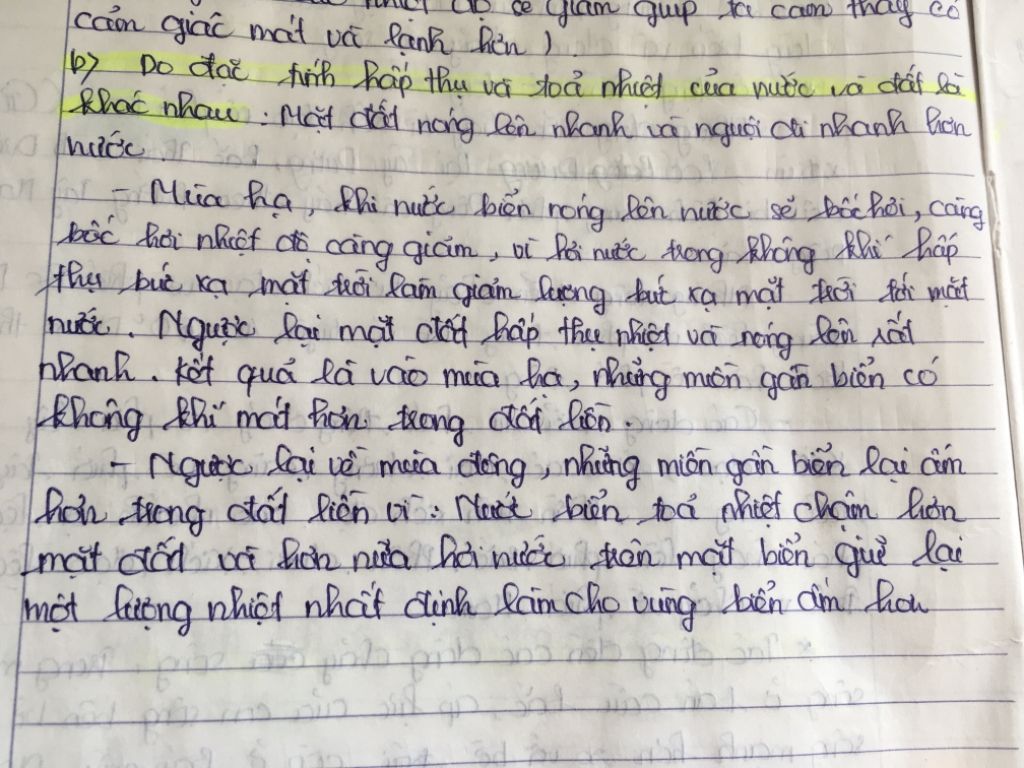 độ sẽ giảm giúp ta cảm thấy có
cảm giác mát và lạnh hơn)
b) Do đặc tính hấp thụ và toả nhiệt của nước và đất là
khác nhau: Mặt đất nóng lên nhanh và nguội đi nhanh hơn
nước.
- Mùa hạ, khi nước biển nóng lên nước sẽ bốc hơi, càng
bốc hơi nhiệt độ càng giảm, vì hơi nước trong không khí hấp
thụ bức xạ mặt trời làm giảm lượng bức xạ mặt trời tới mặt
nước. Ngược lại mặt đất hấp thụ nhiệt và nóng lên rất
nhanh. Kết quả là vào mùa hạ, những miền gần biển có
không khí mát hơn trong đất liền.
- Ngược lại về mùa đông, những miền gần biển lại ấm
hơn trong đất liền vì: Nước biển toả nhiệt chậm hơn
mặt đất và hơn nữa hơi nước trên mặt biển giữ lại
một lượng nhiệt nhất định làm cho vùng biển ấm hơn